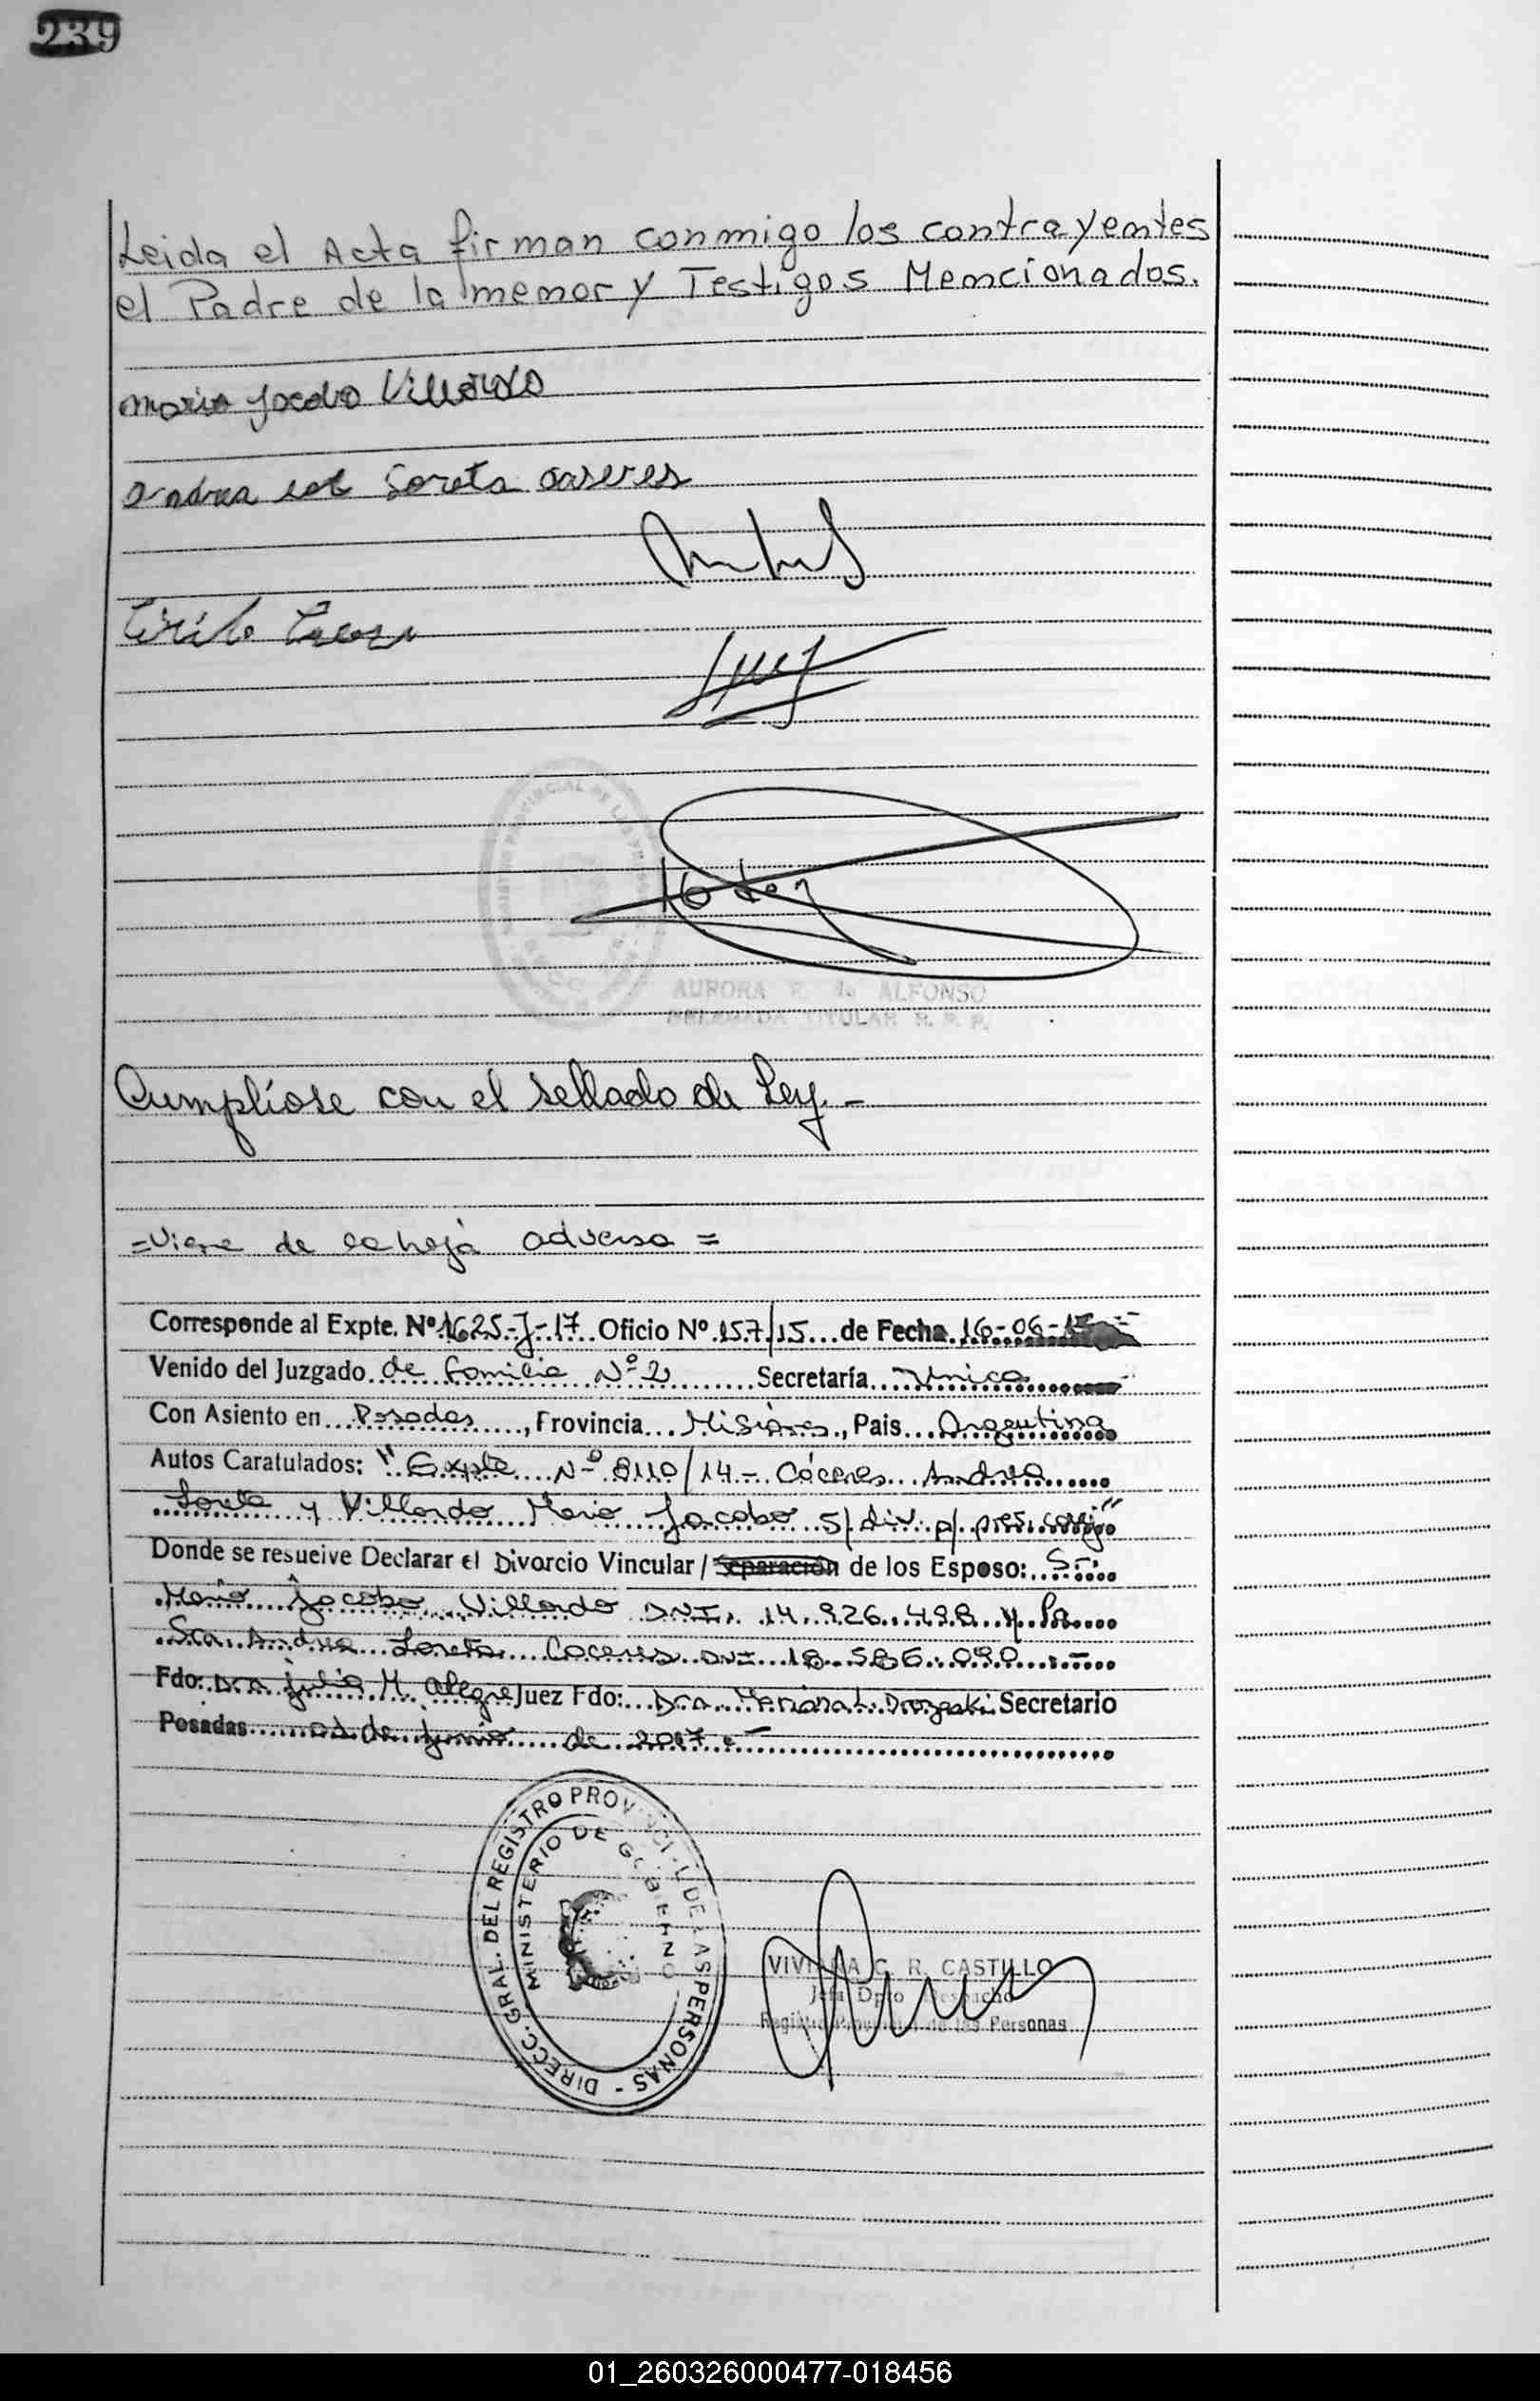 239
Leida el Acta firman conmigo los contrayentes
el Padre de la menor y Testigos Mencionados.
Mario Jacobo Villardo
Loreta caseres
Cirilo
AURORA R. de ALFONSO
DELEGADA TITULAR R. P. P.
Cumpliose con el sellado de Ley.-
=Viene de la hoja adversa=
Corresponde al Expte. Nº 1625-J-17 Oficio Nº 157/15 de Fecha 16-06-15
Venido del Juzgado de familia Nº 2 Secretaría Unica
Con Asiento en Posadas, Provincia Misiones, Pais Argentina
Autos Caratulados: "Expte Nº 8110/14- Cáceres Andrea
Loreta y Villardo Mario Jacobo s/ div. p/ pres. conj"
Donde se resuelve Declarar el Divorcio Vincular / Separación de los Esposo: Sr.
Mario Jacobo Villardo DNI. 14.926.498 y la
Sra. Andrea Loreta Caceres DNI 18.586.090.-
Fdo: Dra Julia M. Alegre Juez Fdo: Dra. Mariana L. Secretario
Posadas de junio de 2017.-
DIRECC. GRAL. DEL REGISTRO PROVINCIAL DE LAS PERSONAS -
MINISTERIO DE GOBIERNO
VIVIANA C. R. CASTILLO
Jefa Dpto Despacho
Registro Provincial de las Personas
01_260326000477-018456